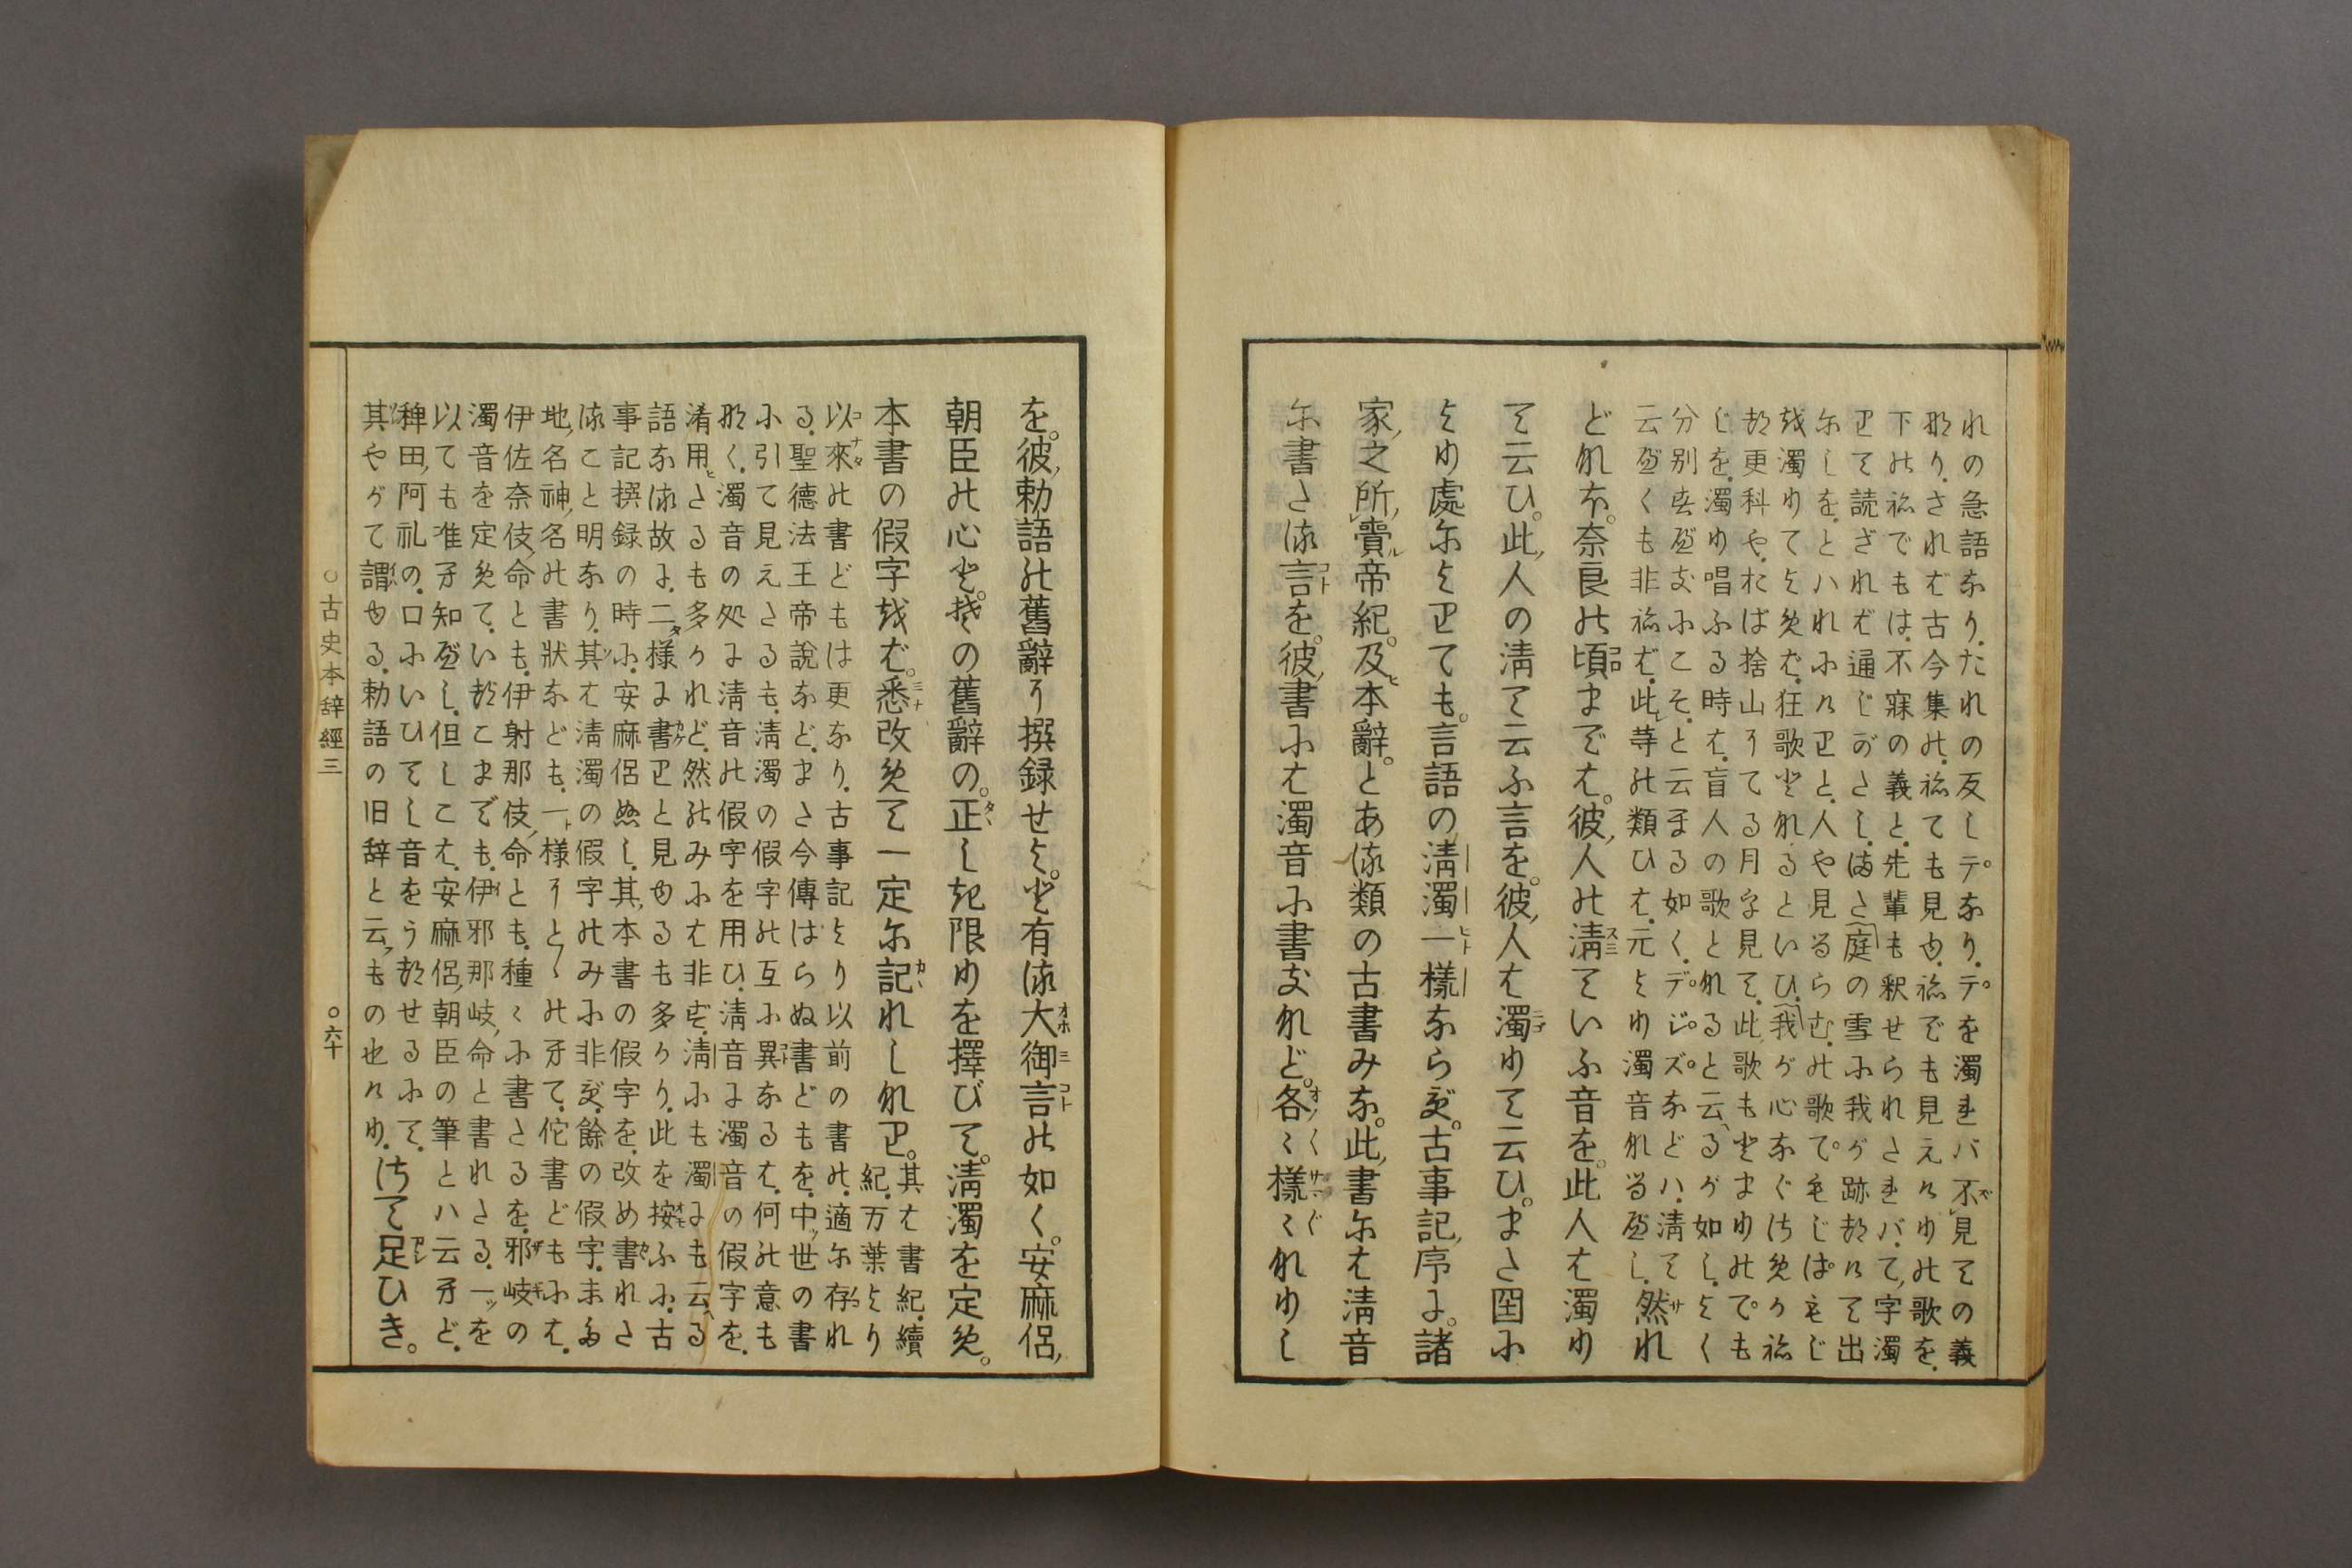 れの急語なり.たれの反しテ゜なり.テ゜を濁れバ不見ての義
なり.されば古今集の.ねても見ゆ.ねでも見えけりの歌を.
下のねでもは.不寐の義と.先輩も釈せられされバ.て字濁
りて読ざれば通じがたし.またさ「庭の雪に我が跡つけて出
にしを.とハれにけりと.人や見るらむ.の歌で.もじはもじ
を濁りてよめば.狂歌となるといひ.「我が心なぐさめかね
つ更科や.おば捨山にてる月字見て.此歌もとまりのでも
じを.濁り唱ふる時は.盲人の歌となると云るが如し.よく
分別すべきにこそ.と云まる如く.デ゜ジ゜ズ゜などハ.清てサ
云べくも非ねば.此等の類ひは.元より濁音なるべし.然れ
どなほ。奈良の頃までは。彼人の清ていふ音を。此人は濁り
て云ひ。此人の清て云ふ言を。彼人は濁りて云ひ。また国に
より處によりても。言語の清濁一様ならず。古事記序に。諸
家之所賷帝紀。及本辭。とある類の古書みな。此書には清音
に書たる言を。彼書には濁音に書きなれど。各〻様〻なりし
を。彼勅語の舊辭に撰録せよ。と有る大御言の如く。安麻侶
朝臣の心と。其の舊辭の。正しき限りを擇びて。清濁を定め。
本書の假字をば。悉改めて一定に記れしなり。其は書紀.續
紀.万葉より
以來の書どもは更なり.古事記より以前の書の.適に存れ
る.聖德法王帝説など.また今傳はらぬ書どもを.中世の書
に引て見えたるも.清濁の假字の互に異なるは.何の意も
なく.濁音の処に清音の假字を用ひ.清音に濁音の假字を.
淆用たるも多かれど.然のみには非ず.清にも濁にも云る
語なる故に.二様に書りと見ゆるも多かり.此を按ふに.古
事記撰録の時に.安麻侶ぬし.其本書の假字を.改め書れた
ること明なり.其は清濁の假字のみに非ず.餘の假字.また
地名神名の書狀なども.一様にとゝのへて.佗書どもには.
伊佐奈伎命とも.伊射那伎命とも.種〻に書たるを.邪岐の
濁音を定めて.いつこまでも.伊邪那岐命と書れたる.一を
以ても准へ知べし.但しこは.安麻侶朝臣の筆とハ云へど.
稗田阿礼の.口にいひてし音をうつせるにて.
其やがて謂ゆる.勅語の旧辞と云ものの也けり.さて足ひき。
○古史本辞經三 ○六十